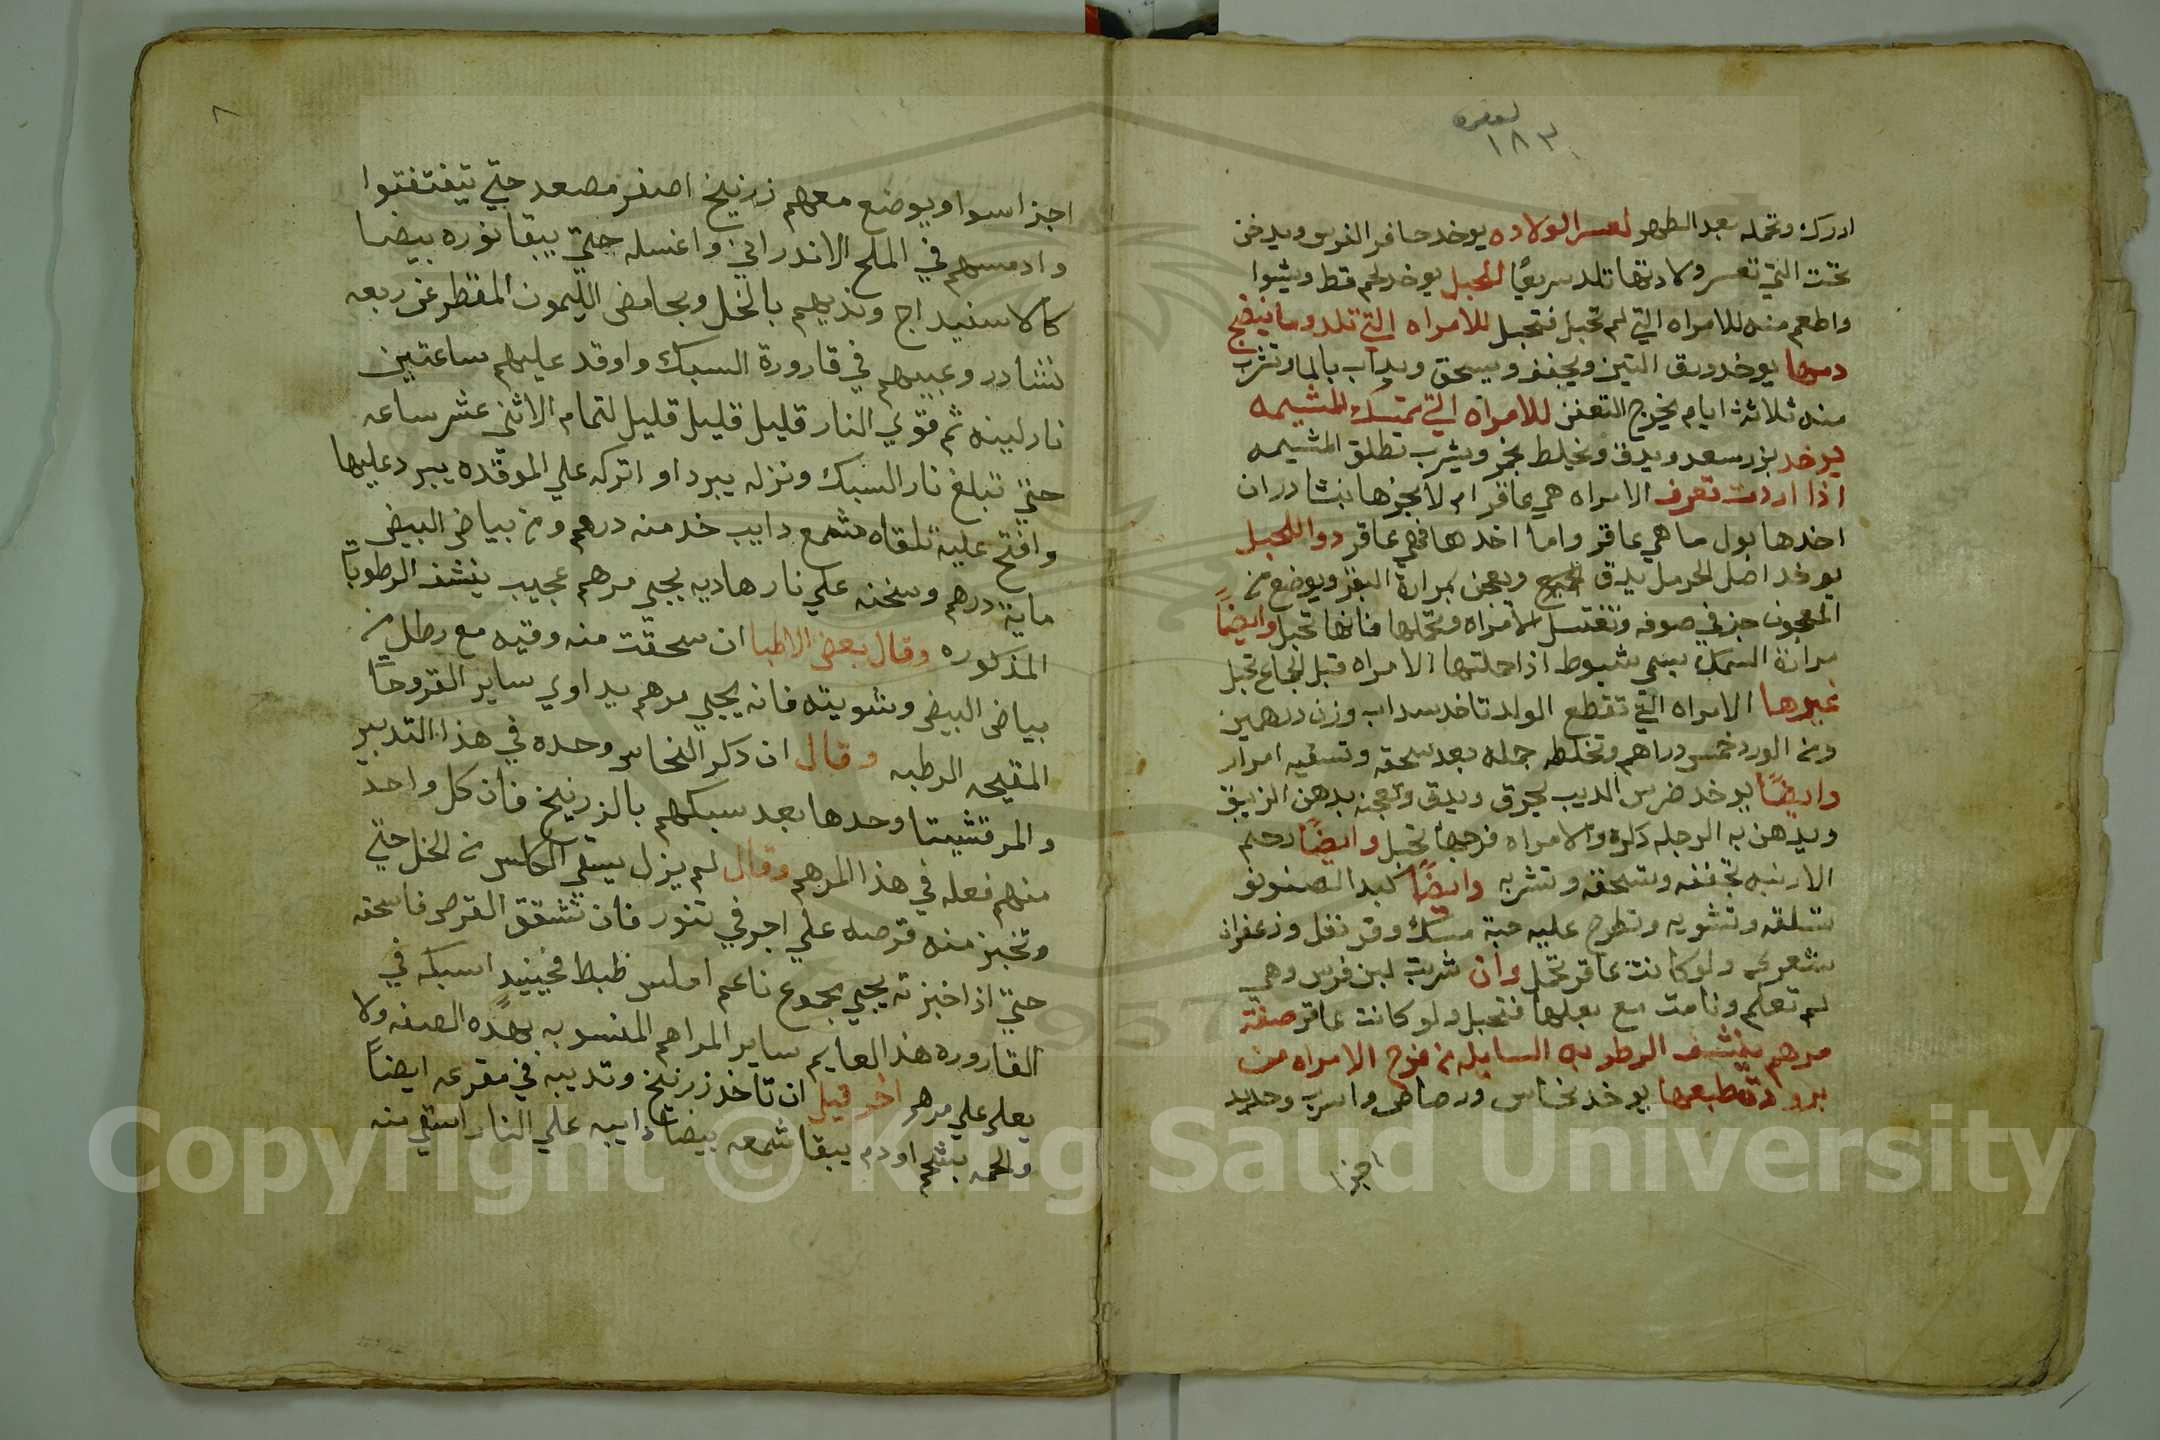 ١٨٣
ادرك وتحمله بعد الطهر لعسر الولاده يوخد حافر الفرس ويدخن
تحت التي تعسر ولادتها تلد سريعًا للحبل يوخد لحم قط ويشوا
واطعم منه للامراه التي لم تحبل فتحبل للامراه التي تلد وما ينضج
دمها يوخد ورق التين ويجفف ويسحق ويداب بالما وتشرب
منه ثلاثة ايام يخرج التعفن للامراه التي تمتسك المشيمه
يوخد بزر سعد ويدق ويخلط بخمر ويشرب تطلق المشيمه
اذا اردت تعرف الامراه هي عاقر ام لا بخرها بنشادر ان
اخدها بول ما هي عاقر واما اخدها فهي عاقر دوا للحبل
يوخد اصل الحرمل يدق ويعجن بمرارة البقر ويوضع من
المعجون جز في صوفه وتغتسل الامراه وتحملها فانها تحبل وايضًا
مرارة السمك يسمي شبوط اذا حملتها الامراه قبل الجماع تحبل
غيرها الامراه التي تقطع الولد تاخد سداب وزن درهمين
ومن الورد خمس دراهم وتخلطه جمله بعد سحقه وتسقيه امرار
وايضًا يوخد ضرس الديب يحرق ويدق وتعجنه بدهن الزيبق
ويدهن به الرجل ذكره والامراه فرجها تحبل وايضًا رحم
الارنبه تجففه وتسحقه وتشربه وايضًا كبد الصنونو
تسلقه وتشويه وتطرح عليه حبة مسك وقرنفل وزعفران
شعري ولو كانت عاقر تحمل وان شربت لبن فرس وهي
لم تعلم ونامت مع بعلها فتحبل ولو كانت عاقر صفة
مرهم ينشف الرطوبه السايله من فرج الامراه من
برودة طبعها يوخد نحاس ورصاص واسرب وحديد
اجزا
٨
اجزا سوا ويوضع معهم زرنيخ اصفر مصعد حتي يتفتفتوا
وادمسهم في الملح الاندراني واغسله حتي يبقا نوره بيضا
كالاسفيداج ونديهم بالخل وبحامض الليمون المقطر عن ربعه
نشادر وعبيهم في قارورة السبك واوقد عليهم ساعتين
نار لينه ثم قوي النار قليل قليل قليل لتمام الاثني عشر ساعه
حتي تبلغ نار السبك ونزله يبرد او اتركه علي الموقده يبرد عليها
وافتح عليه تلقاه مشمع دايب خد منه درهم ومن بياض البيض
ماية درهم وسخنه علي نار هاديه يجي مرهم عجيب ينشف الرطوبات
المذكوره وقال بعض الاطبا ان سحقت منه وقيه مع رطل من
بياض البيض وشويته فانه يجي مرهم يداوي ساير القروحات
المقيحه الرطبه وقال ان ذكر النحاس وحده في هذا التدبير
والمرقشيتا وحدها بعد سبكهم بالزرنيخ فان كل واحد
منهم فعله في هذا المرهم وقال لم يزل يسقي الكلس من الخل حتي
وتخبز منه قرصه علي اجر في تنور فان تشقق القرص فاسحقه
حتي اذا خبزته يجي مجموع ناعم املس ظبط فحينيدٍ اسبكه في
القاروره هذا العايم ساير المراهم المنسوبه بهذه الصفه ولا
يعلو علي مرهم اخر قيل ان تاخذ زرنيخ وتديبه في مقرعه ايضًا
والحمه بشحم اودم يبقا شمعه بيضا دايبه علي النار اسقي منه